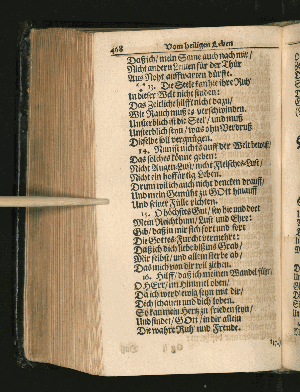 468 Vom heiligen Leben
Daß ich/ mein Same auch nach mir/
Nicht andern Leuten für der Thür
Aus Noht auffwarten dürffe.
13. Die Seele kan hie ihre Ruh
In dieser Welt nicht finden:
Das Zeitliche hilfft nicht dazu/
Wie Rauch muß es verschwinden.
Unsterblich ist die Seel/ und muß
Unsterblich seyn/ was ohn Verdruß
Dieselbe soll vergnügen.
14. Nun ist nichts auff der Welt bewust/
Das solches könne geben:
Nicht Augen-Lust/ nicht Fleisches-Lust/
Nicht ein hoffärtig Leben.
Drum wil ich auch nicht dencken drauff
Und mein Gemüht zu GOtt hinauff
Und seiner Fülle richten.
15. O höchstes Gut/ sey hie und dort
Mein Reichthum/ Lust und Ehre:
Gib/ daß in mir sich fort und fort
Die Gottes-Furcht vermehre:
Daß ich dich liebe biß ins Grab/
Mir selbst/ und allem sterbe ab/
Das mich von dir wil ziehen.
16. Hilff/ daß ich meinen Wandel führ/
O HErr/ im Himmel oben/
Da ich werd' ewig seyn mit dir/
Dich schauen und dich loben.
So kan mein Hertz zu frieden seyn/
Und findet/ GOtt/ in dir allein
Die wahre Ruh und Freude.